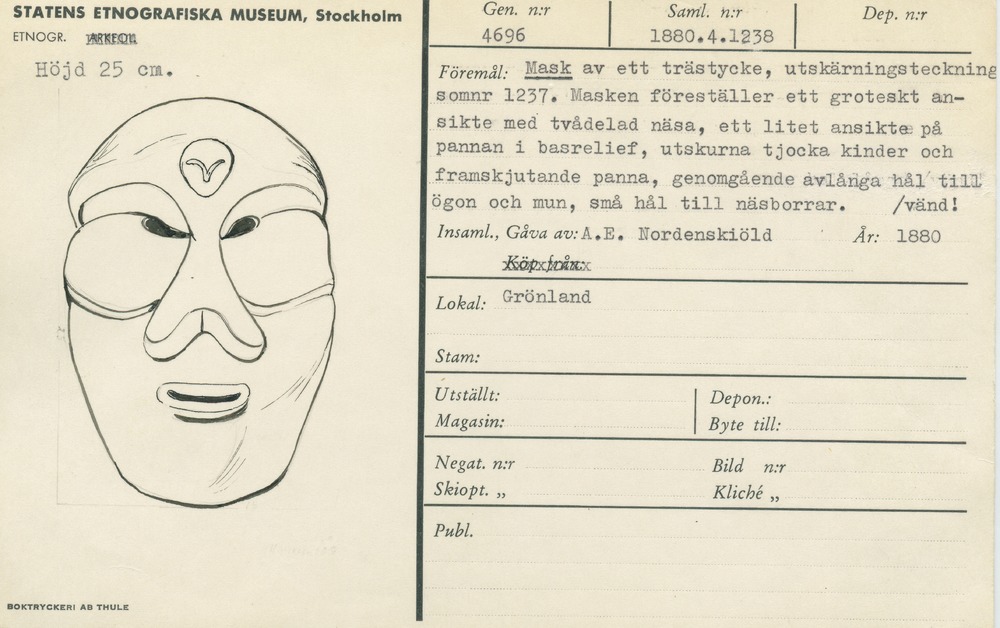 STATENS ETNOGRAFISKA MUSEUM, Stockholm
ETNOGR. ARKEOL.
Höjd 25 cm.
BOKTRYCKERI AB THULE
Gen. n:r
4696
Saml. n:r
1880.4.1238
Dep. n:r
Föremål: Mask av ett trästycke, utskärningsteckning
somnr 1237. Masken föreställer ett groteskt an-
sikte med tvådelad näsa, ett litet ansikte på
pannan i basrelief, utskurna tjocka kinder och
framskjutande panna, genomgående avlånga hål till
ögon och mun, små hål till näsborrar. /vänd!
Insaml., Gåva av: A.E. Nordenskiöld År: 1880
Köp från:
Lokal: Grönland
Stam:
Utställt: Depon.:
Magasin: Byte till:
Negat. n:r Bild n:r
Skiopt. „ Kliché „
Publ.